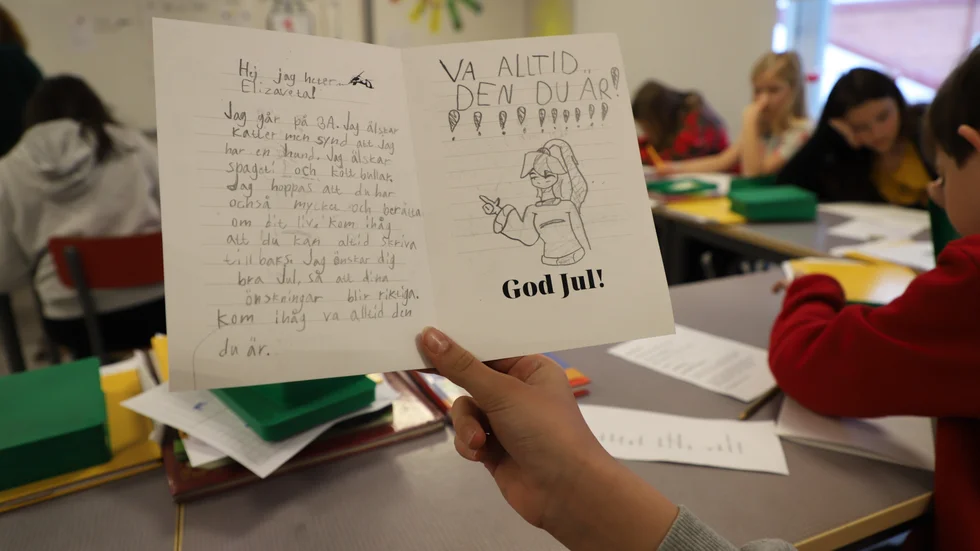 Hej jag heter...
Elizaveta!
Jag går på 3A. Jag älskar
katter men synd att jag
har en hund. Jag älskar
spageti och köttbullar.
Jag hoppas att du har
också mycket och berätta
om dit liv. Kom ihåg
att du kan altid skriva
tillbaks. Jag önskar dig
bra Jul, så att dina
önskningar blir riktiga.
Kom ihåg va alltid den
du är.
VA ALLTID
DEN DU ÄR!
God Jul!